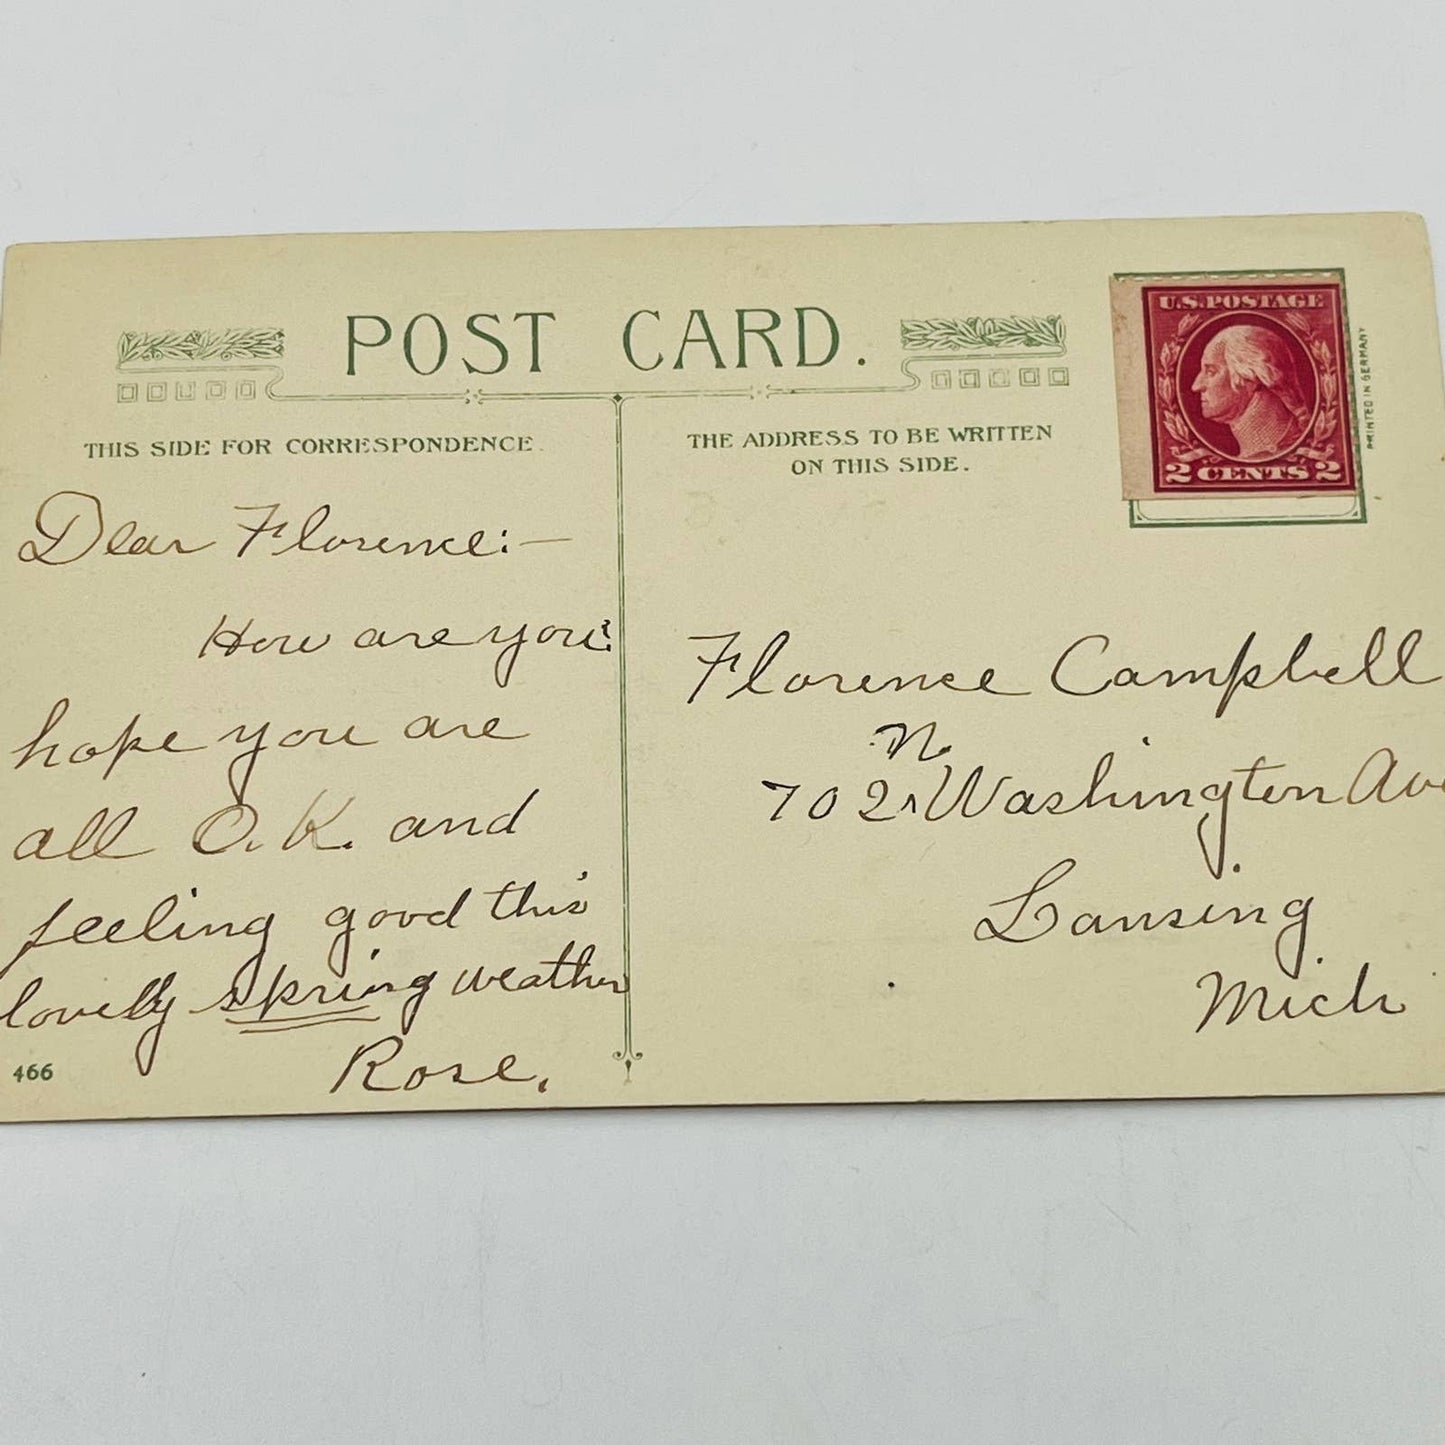 POST CARD.
THIS SIDE FOR CORRESPONDENCE.
THE ADDRESS TO BE WRITTEN
ON THIS SIDE.
U.S. POSTAGE
2 CENTS 2
PRINTED IN GERMANY
Dear Florence:—
How are you?
hope you are
all O.K. and
feeling good this
lovely spring weather
Rose.
466
Florence Campbell
N.
702 Washington Ave
Lansing
Mich